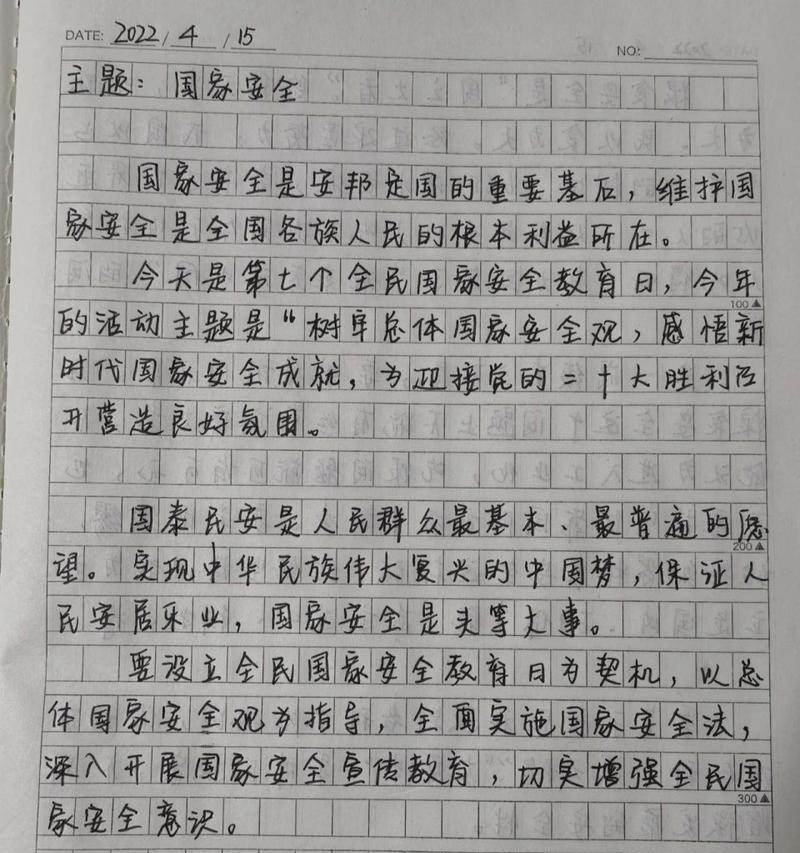 DATE: 2022 / 4 / 15
NO:
主题：国家安全
国家安全是安邦定国的重要基石，维护国
家安全是全国各族人民的根本利益所在。
今天是第七个全民国家安全教育日，今年
100
的活动主题是“树牢总体国家安全观，感悟新
时代国家安全成就，为迎接党的二十大胜利召
开营造良好氛围。
国泰民安是人民群众最基本、最普遍的愿
200
望。实现中华民族伟大复兴的中国梦，保证人
民安居乐业，国家安全是头等大事。
要设立全民国家安全教育日为契机，以总
体国家安全观为指导，全面实施国家安全法，
深入开展国家安全宣传教育，切实增强全民国
300
家安全意识。